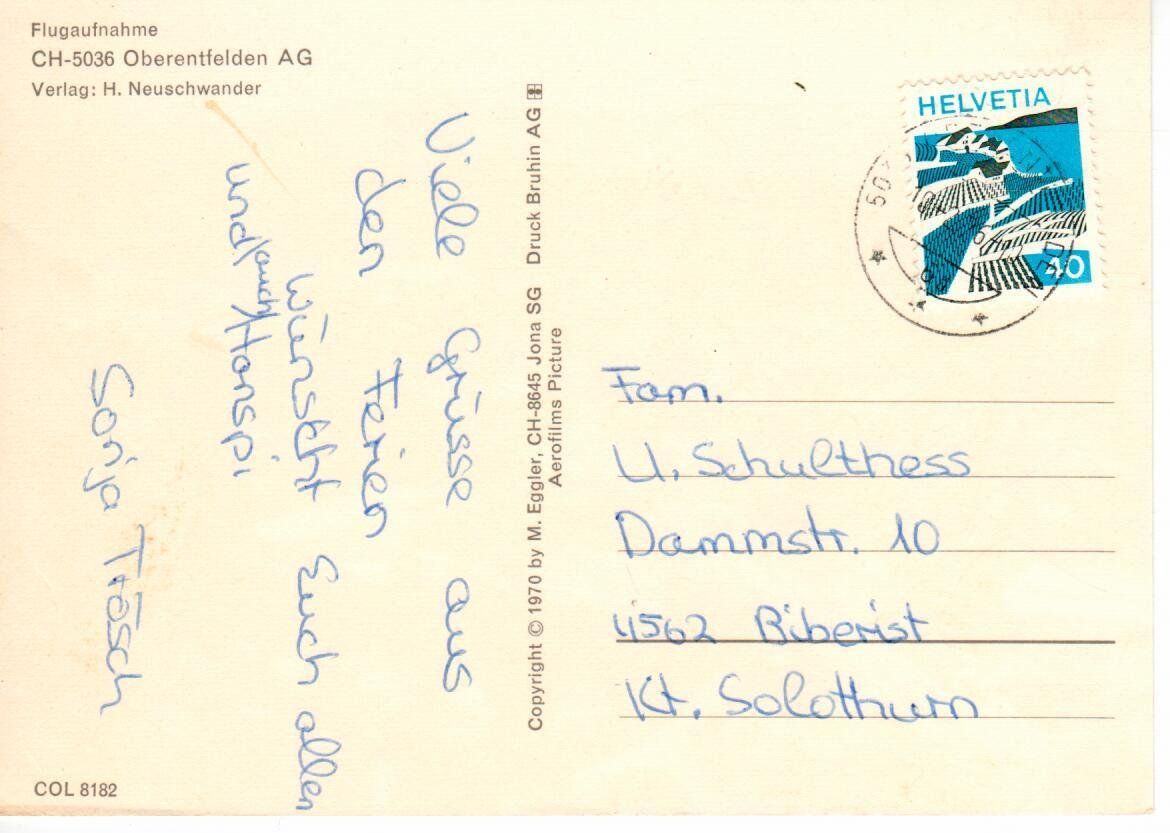 Flugaufnahme
CH-5036 Oberentfelden AG
Verlag: H. Neuschwander
Viele Grüsse aus
den Ferien
wünscht Euch allen
und (auch) Hanspi
Sonja Trösch
COL 8182
Copyright © 1970 by M. Eggler, CH-8645 Jona SG Druck Bruhin AG
Aerofilms Picture
HELVETIA
40
Fam.
U. Schulthess
Dammstr. 10
4562 Biberist
Kt. Solothurn